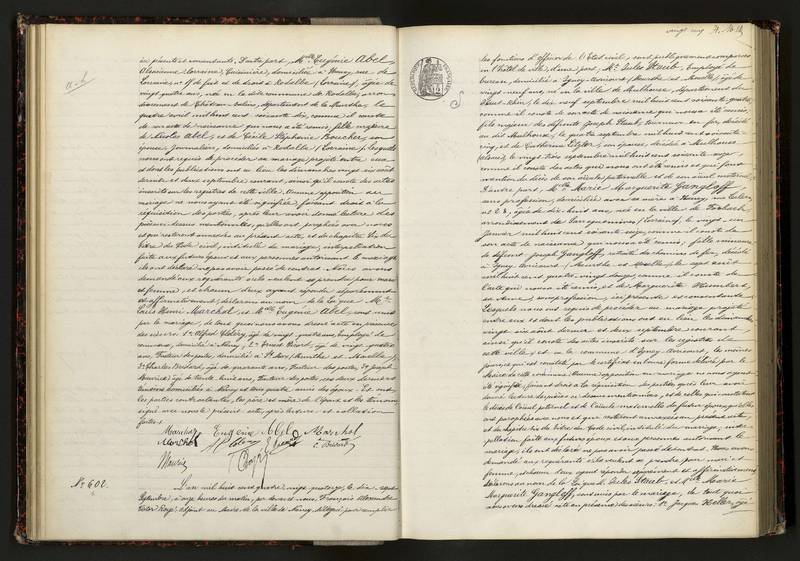 ici présente et consentante, D'autre part, Mlle Eugénie Abel,
Alsacienne-Lorraine, Cuisinière, domiciliée à Nancy, rue de
Lorraine, et de fait et de droit à Rodalbe (Lorraine), âgée de
vingt quatre ans, née en la dite commune de Rodalbe, arron-
dissement de Château-Salins, département de la Meurthe, le
quatre avril mil huit cent soixante dix, comme il conste
de son acte de naissance qui nous a été remis, fille mineure
de Nicolas Abel, et de Cécile Stéphanie Boucher, son
épouse, journaliers, domiciliés à Rodalbe (Lorraine). Lesquels
nous ont requis de procéder au mariage projeté entre eux
et dont les publications ont eu lieu les dimanches vingt six août
dernier et deux septembre courant, ainsi qu'il conste des actes
inscrits sur les registres de cette ville. Aucune opposition au
mariage ne nous ayant été signifiée, faisant droit à la
réquisition des parties, après leur avoir donné lecture des
pièces dessus mentionnées,
et qui resteront annexées au présent acte, et du chapitre six du
titre du Code civil, intitulé du mariage, interpellation
faite aux futurs époux et aux personnes autorisant le mariage
ils ont déclaré ne pas avoir passé de contrat. Nous avons
demandé aux requérants s'ils veulent se prendre pour mari
et femme, et chacun d'eux ayant répondu séparément
et affirmativement, déclarons au nom de la loi que Mr
Louis Henri Marchal, et Mlle Eugénie Abel, sont unis
par le mariage, de tout quoi nous avons dressé acte en présence
des sieurs: 1° Alfred Voléry, âgé de vingt quatre ans, Employé de
commerce, domicilié à Nancy, 2° Ernest Picard, âgé de vingt quatre
ans, Facteur des postes, domicilié à St Max (Meurthe et Moselle)
3° Charles Bedard, âgé de quarante ans, Facteur des postes, 4° Joseph
Maurice, âgé de trente huit ans, Facteur des postes, ces deux derniers
domiciliés à Nancy et tous quatre amis des époux. Et
les parties contractantes, les père et mère de l'époux et les témoins
signé avec nous le présent acte, après lecture et collation
faites.
Marchal Eugénie Abel Marchal
Marchal
Maurice
N° 602.
L'an mil huit cent quatre vingt quatorze, le dix sept
Septembre, à onze heures du matin, par devant nous François Alexandre
Victor Rogé, adjoint au Maire de la ville de Nancy, délégué pour remplir
vingt cinq
les fonctions d'officier de l'Etat civil, sont publiquement comparus
en l'hôtel de ville, d'une part, Mr Jules Staub, Employé de
bureau, domicilié à Igney-Avricourt, (Meurthe et Moselle), âgé de
vingt neuf ans, né en la ville de Mulhouse, département du
Haut-Rhin, le dix neuf septembre mil huit cent soixante quatre,
comme il conste de son acte de naissance qui nous a été remis,
fils majeur des défunts Joseph Staub, tourneur en fer, décédé
au dit Mulhouse, le quatre septembre mil huit cent soixante-
cinq, et de Catherine, son épouse, décédée à Mulhouse
(Alsace), le vingt trois septembre mil huit cent soixante onze
comme il conste des actes qui nous ont été remis
D'autre part, Mlle Marie Marguerite Gangloff,
sans profession, domiciliée avec sa mère à Nancy
n° 28, âgée de dix huit ans, née en la ville de Forbach
arrondissement de Sarreguemines, (Lorraine), le vingt-un
Janvier mil huit cent soixante seize, comme il conste de
son acte de naissance qui nous a été remis; fille mineure
de défunt Joseph Gangloff, retraité des chemins de fer, décédé
à Igney-Avricourt, (Meurthe et Moselle), le sept août
mil huit cent quatre vingt douze, comme il conste de
l'acte qui nous a été remis, et de Marguerite Humbert,
sa veuve, sans profession, ici présente et consentante.
Lesquels nous ont requis de procéder au mariage projeté
entre eux et dont les publications ont eu lieu les dimanches
vingt six août dernier et deux septembre courant
ainsi qu'il conste des actes inscrits sur les registres de
cette ville et en la commune d'Igney-Avricourt, les mêmes
jours, ce qui est constaté par le certificat en bonne forme délivré par le
Maire de cette commune. Aucune opposition au mariage ne nous ayant
été signifiée, faisant droit à la réquisition des parties, après leur avoir
donné lecture des pièces ci-dessus mentionnées
et du chapitre six du titre du Code civil, intitulé du mariage, inter-
pellation faite aux futurs époux et aux personnes autorisant le
mariage, ils ont déclaré ne pas avoir passé de contrat. Nous avons
demandé aux requérants s'ils veulent se prendre pour mari et
femme, et chacun d'eux ayant répondu séparément et affirmativement
déclarons au nom de la loi que Mr Jules Staub, et Mlle Marie
Marguerite Gangloff, sont unis par le mariage, de tout quoi
nous avons dressé acte en présence des sieurs: 1° Jacques Heller, âgé